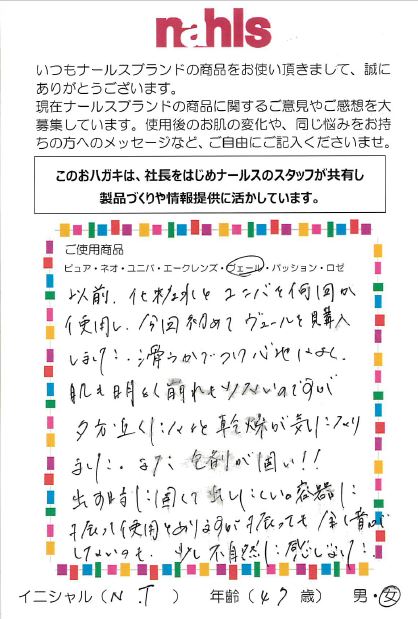 nahls
いつもナールスブランドの商品をお使い頂きまして、誠に
ありがとうございます。
現在ナールスブランドの商品に関するご意見やご感想を大
募集しています。使用後のお肌の変化や、同じ悩みをお持
ちの方へのメッセージなど、ご自由にご記入くださいませ。
このおハガキは、社長をはじめナールスのスタッフが共有し
製品づくりや情報提供に活かしています。
ご使用商品
ピュア・ネオ・ユニバ・エークレンズ・ヴェール・パッション・ロゼ
以前、化粧水とユニバを何回か
使用し、今回初めてヴェールを購入
しました。滑らかでつけ心地はよく、
肌も明るく崩れも少ないのですが
夕方近くになると乾燥が気になり
ました。また、 が固い!!
出す時に固くて出しにくい。容器に
振って使用とありますが振っても全く音が
してないのも、少し不自然に感じました。
イニシャル(N.T) 年齢(47歳) 男・女